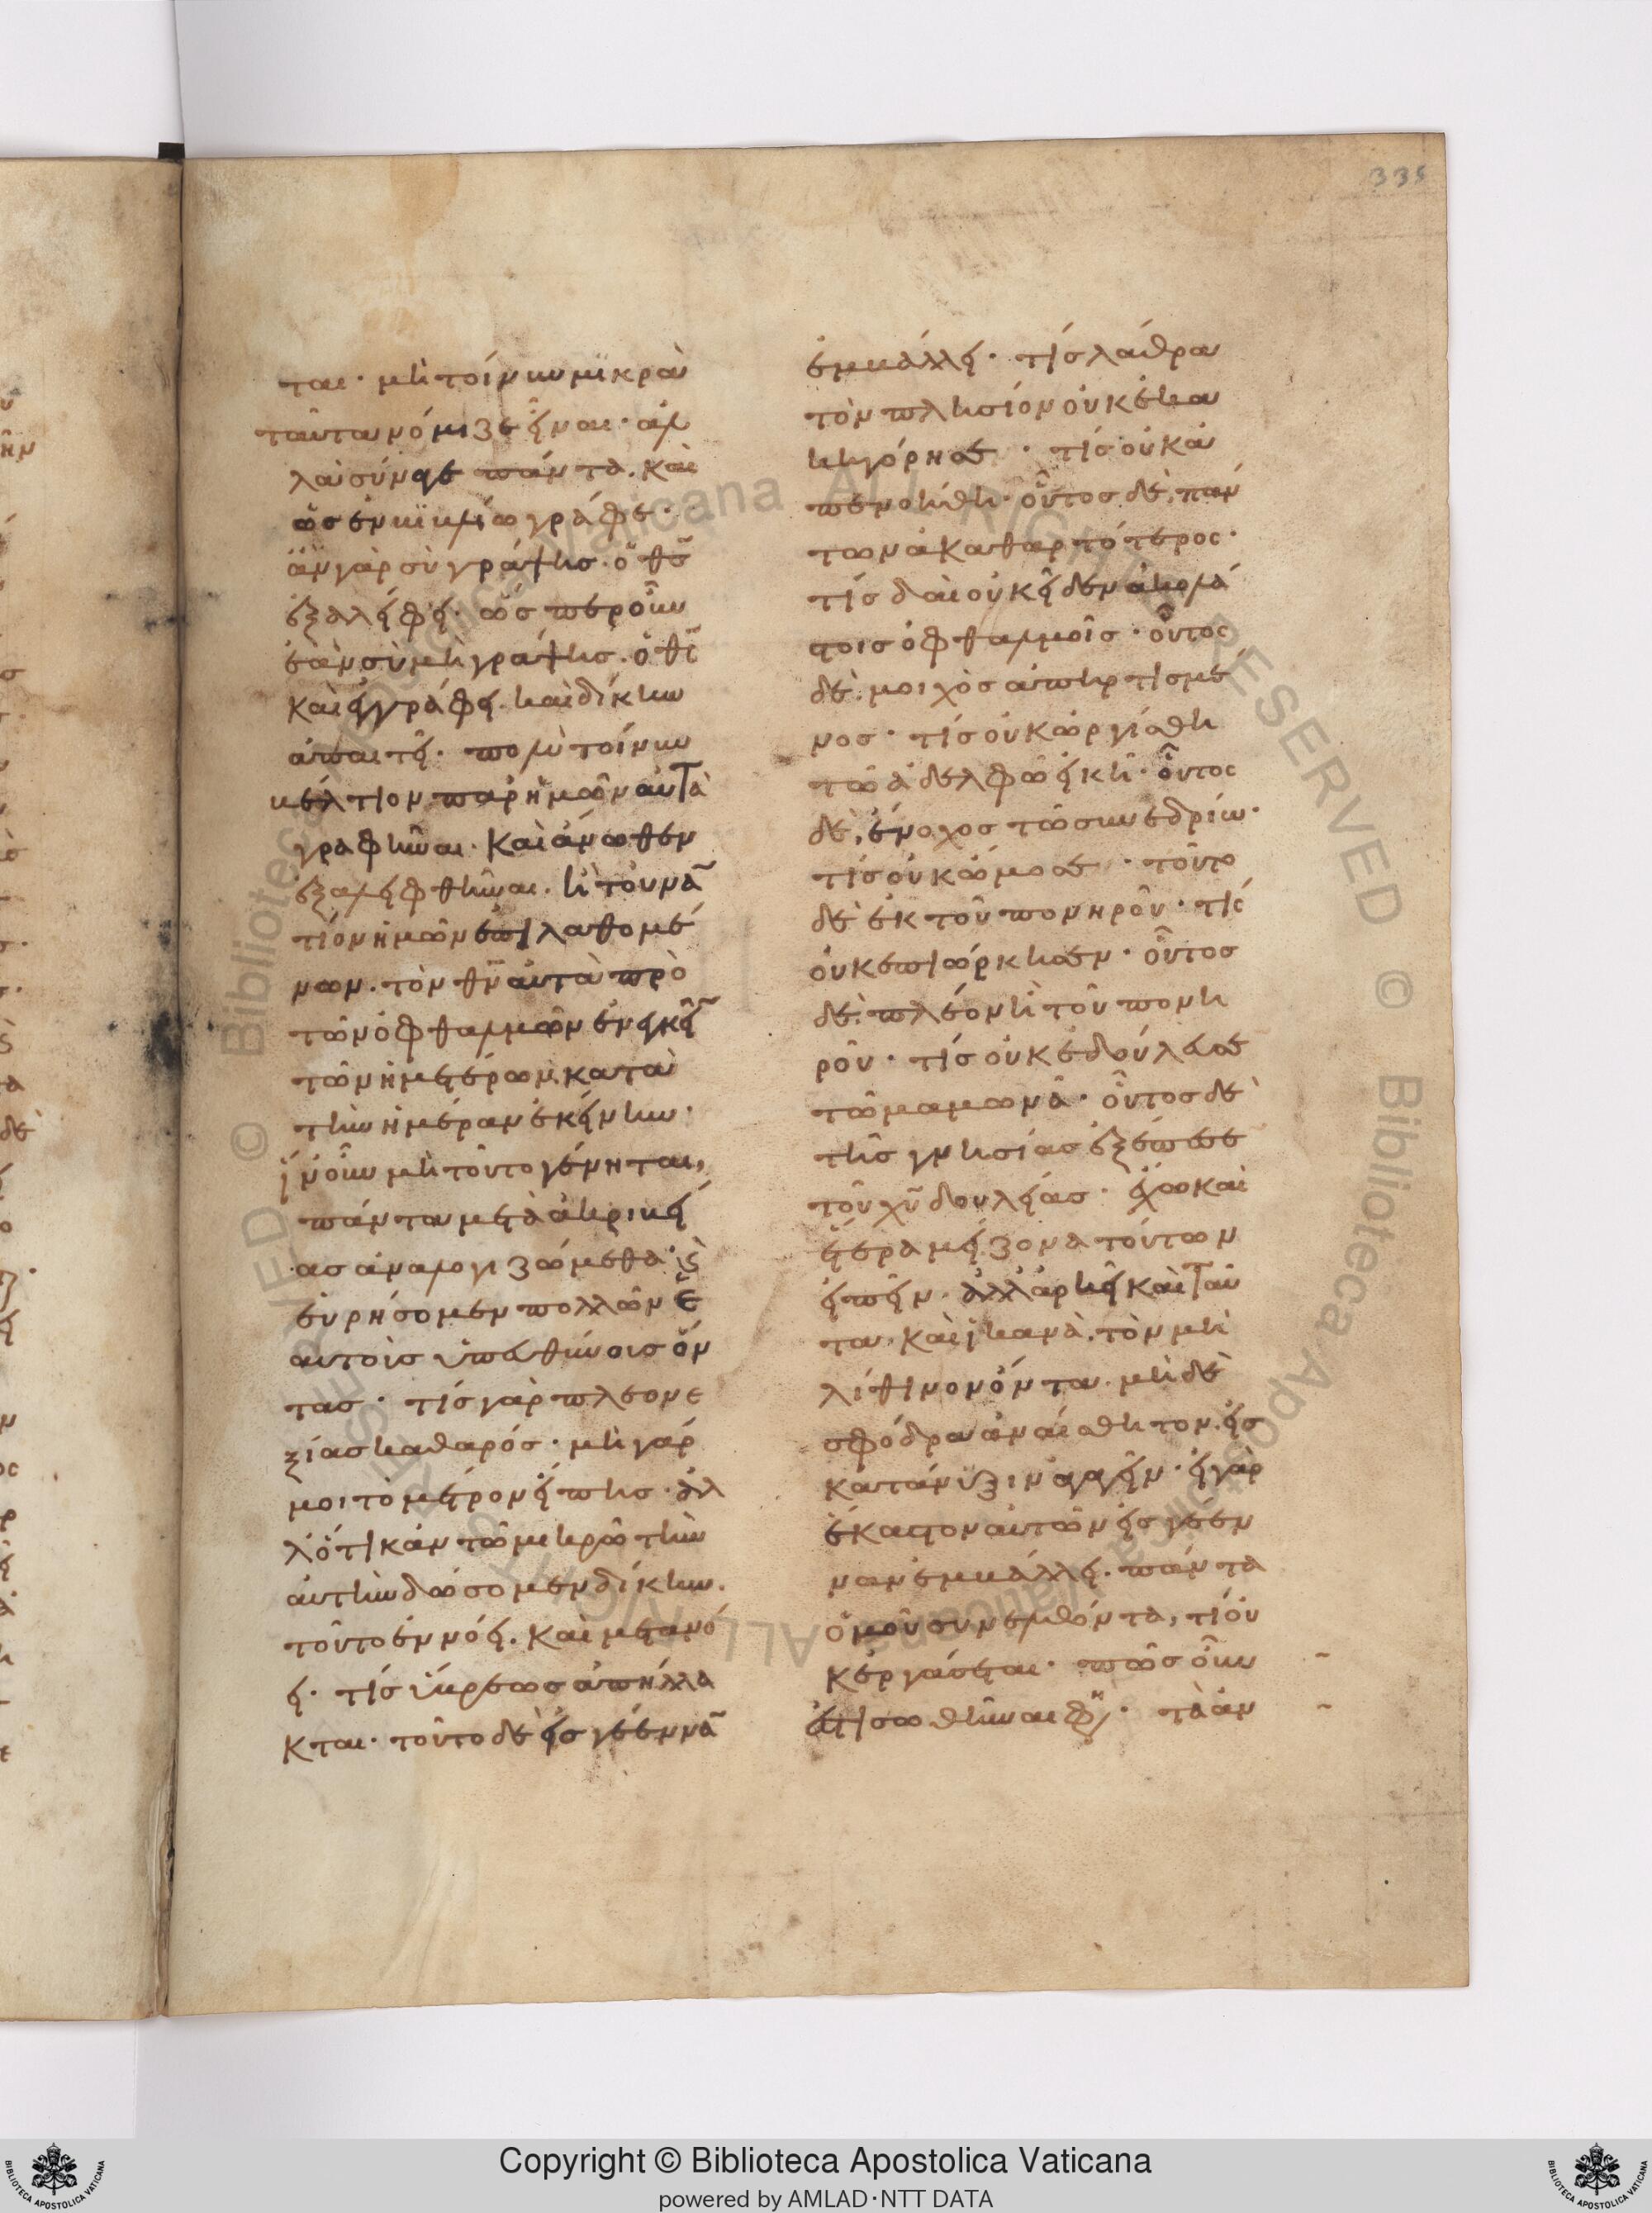 335
ται· μὴ τοίνυν μϊκρὰ
ταῦτα νόμιζε εἶναι· ἀλ
λὰ σύναγε πάντα. καὶ
ὡς ἐν βϊβλίω γράφε·
ἂν γὰρ σὺ γράψης. ὁ θς
ἐξαλείφει· ὥσπερ οὖν
ἐὰν σὺ μὴ γράψης. ὁ θς
καὶ ἐγγράφει. καὶ δίκην
ἀπαιτεῖ· πολὺ τοίνυν
βέλτιον παρ ἡμῶν αὐτὰ
γραφῆναι. καὶ ἄνωθεν
ἐξαλειφθῆναι. ἢ τοὐναν
τίον ἡμῶν ἐπιλαθομέ
νων. τὸν θν αὐτὰ πρὸ
τῶν ὀφθαλμῶν ἐνεγκεῖν
τῶν ἡμετέρων. κατὰ
τὴν ἡμέραν ἐκείνην·
ἵν οὖν μὴ τοῦτο γένηται,
πάντα μετὰ ἀκριβεί
ας ἀναλογιζώμεθα· καὶ
εὑρήσομεν πολλῶν ἑ
αυτοὺς ὑπευθύνους ὄν
τας· τίς γὰρ πλεονε
ξίας καθαρός· μὴ γάρ
μοι τὸ μέτρον εἴπης· ἀλ
λ ὅτι κἂν τῶ μικρῶ τὴν
αὐτὴν δώσομεν δίκην.
τοῦτο ἐννόει. καὶ μετανό
ει· τίς ὕβρεως ἀπήλλα
κται· τοῦτο δὲ εἰς γέενναν
ἐμβάλλει· τίς λάθρα
τὸν πλησίον οὐκ ἐκα
κηγόρησε· τίς οὐκ ἀ
πενοήθη· οὗτος δὲ, πάν
των ἀκαθαρτότερος·
τίς δαὶ οὐκ εἶδεν ἀκολά
στοις ὀφθαλμοῖς· οὗτος
δὲ. μοιχὸς ἀπηρτισμέ
νος· τίς οὐκ ὠργίσθη
τῶ ἀδελφῶ εἰκῆ· οὗτος
δὲ, ἔνοχος τῶ συνεδρίω·
τίς οὐκ ὤμοσε· τοῦτο
δὲ ἐκ τοῦ πονηροῦ· τίς
οὐκ ἐπιώρκησεν· οὗτος
δὲ. πλέον ἢ τοῦ πονη
ροῦ· τίς οὐκ ἐδούλευσε
τῶ μαμωνᾶ· οὗτος δὲ
τῆς γνησίας ἐξέπεσε
τοῦ χυ δουλείας· ἔχω καὶ
ἕτερα μείζονα τούτων
εἰπεῖν. ἀλλ ἀρκεῖ καὶ ταῦ
τα. καὶ ἱκανὰ. τὸν μὴ
λίθινον ὄντα. μὴ δὲ
σφόδρα ἀναίσθητον. εἰς
κατάνϋξιν ἀγαγεῖν· εἰ γὰρ
ἕκαστον αὐτῶν εἰς γέεν
ναν ἐμβάλλει. πάντα
ὁμοῦ συνελθόντα, τί οὐ
κ ἐργάσεται· πῶς οὖν
ἔστι σωθῆναι φη· τὰ ἀν